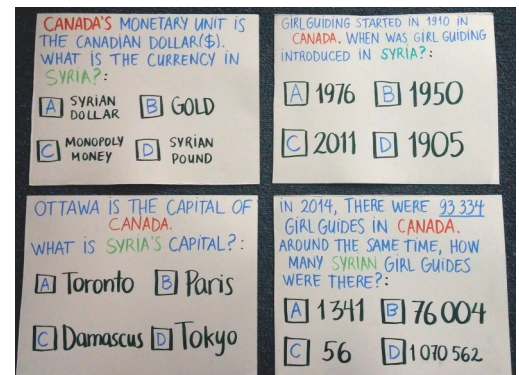 CANADA'S MONETARY UNIT IS
THE CANADIAN DOLLAR($).
WHAT IS THE CURRENCY IN
SYRIA?:
A SYRIAN DOLLAR B GOLD
C MONOPOLY MONEY D SYRIAN POUND
GIRL GUIDING STARTED IN 1910 IN
CANADA. WHEN WAS GIRL GUIDING
INTRODUCED IN SYRIA?:
A 1976 B 1950
C 2011 D 1905
OTTAWA IS THE CAPITAL OF
CANADA.
WHAT IS SYRIA'S CAPITAL?:
A Toronto B Paris
C Damascus D Tokyo
IN 2014, THERE WERE 93 334
GIRL GUIDES IN CANADA.
AROUND THE SAME TIME, HOW
MANY SYRIAN GIRL GUIDES
WERE THERE?:
A 1341 B 76 004
C 56 D 1 070 562